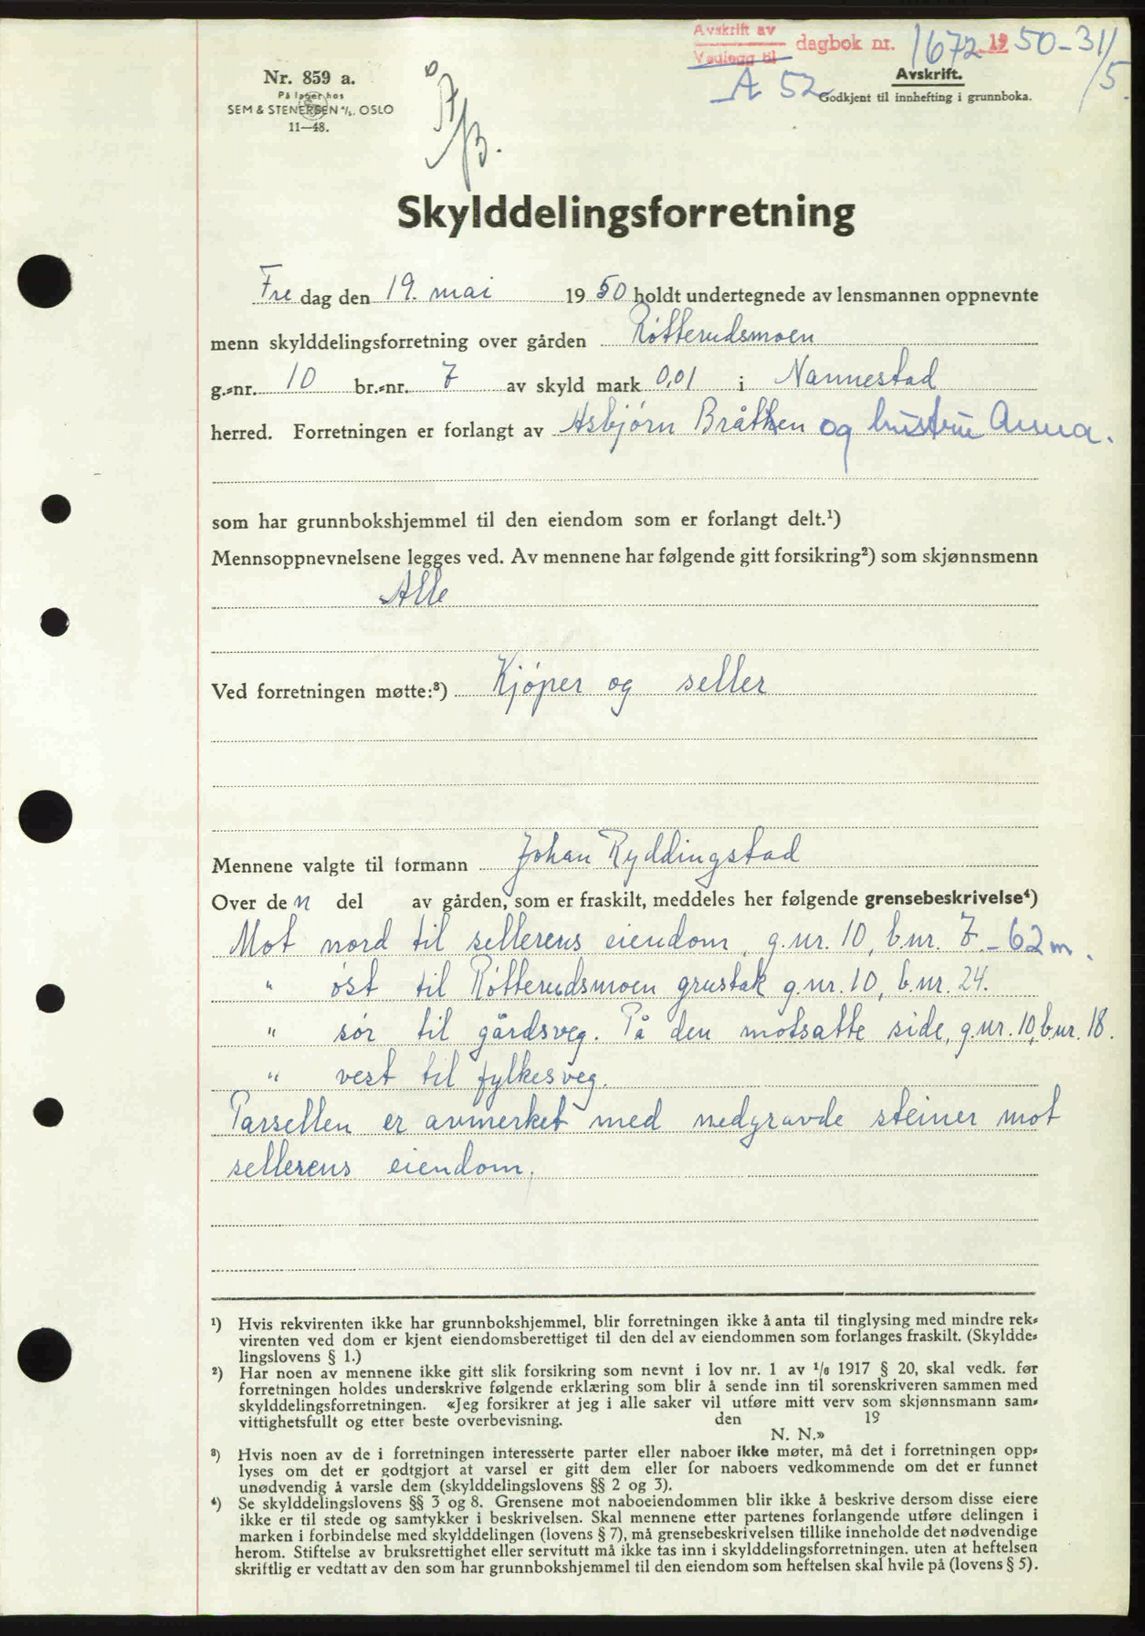 Avskrift av
Vedlegg til dagbok nr. 1672 1950-31/5.
A 52
Avskrift.
Godkjent til innhefting i grunnboka.
Nr. 859 a.
På lager hos
SEM & STENERSEN A/S. OSLO
11-48.
Skylddelingsforretning
Fre dag den 19. mai 1950 holdt undertegnede av lensmannen oppnevnte
menn skylddelingsforretning over gården Røtterudsmoen
g.-nr. 10 br.-nr. 7 av skyld mark 0,01 i Nannestad
herred. Forretningen er forlangt av Asbjørn Bråthen og hustru Anna.
som har grunnbokshjemmel til den eiendom som er forlangt delt.¹)
Mennsoppnevnelsene legges ved. Av mennene har følgende gitt forsikring²) som skjønnsmenn
Alle
Ved forretningen møtte:³) Kjøper og seller
Mennene valgte til formann Johan Ryddingstad
Over den del av gården, som er fraskilt, meddeles her følgende grensebeskrivelse⁴)
Mot nord til sellerens eiendom, g.nr. 10, b.nr. 7. - 62 m.
" øst til Røtterudsmoen grustak g.nr. 10, b.nr. 24.
" sør til gårdsveg. På den motsatte side, g.nr. 10, b.nr. 18.
" vest til fylkesveg.
Parsellen er avmerket med nedgravde steiner mot
sellerens eiendom.
¹) Hvis rekvirenten ikke har grunnbokshjemmel, blir forretningen ikke å anta til tinglysing med mindre rek-
virenten ved dom er kjent eiendomsberettiget til den del av eiendommen som forlanges fraskilt. (Skyldde-
lingslovens § 1.)
²) Har noen av mennene ikke gitt slik forsikring som nevnt i lov nr. 1 av 1/6 1917 § 20, skal vedk. før
forretningen holdes underskrive følgende erklæring som blir å sende inn til sorenskriveren sammen med
skylddelingsforretningen. «Jeg forsikrer at jeg i alle saker vil utføre mitt verv som skjønnsmann sam-
vittighetsfullt og etter beste overbevisning. den 19
N. N.»
³) Hvis noen av de i forretningen interesserte parter eller naboer ikke møter, må det i forretningen opp-
lyses om det er godtgjort at varsel er gitt dem eller for naboers vedkommende om det er funnet
unødvendig å varsle dem (skylddelingslovens §§ 2 og 3).
⁴) Se skylddelingslovens §§ 3 og 8. Grensene mot naboeiendommen blir ikke å beskrive dersom disse eiere
ikke er til stede og samtykker i beskrivelsen. Skal mennene etter partenes forlangende utføre delingen i
marken i forbindelse med skylddelingen (lovens § 7), må grensebeskrivelsen tillike inneholde det nødvendige
herom. Stiftelse av bruksrettighet eller servitutt må ikke tas inn i skylddelingsforretningen. uten at heftelsen
skriftlig er vedtatt av den som har grunnbokshjemmel til den eiendom som heftelsen skal hvile på (lovens § 5).